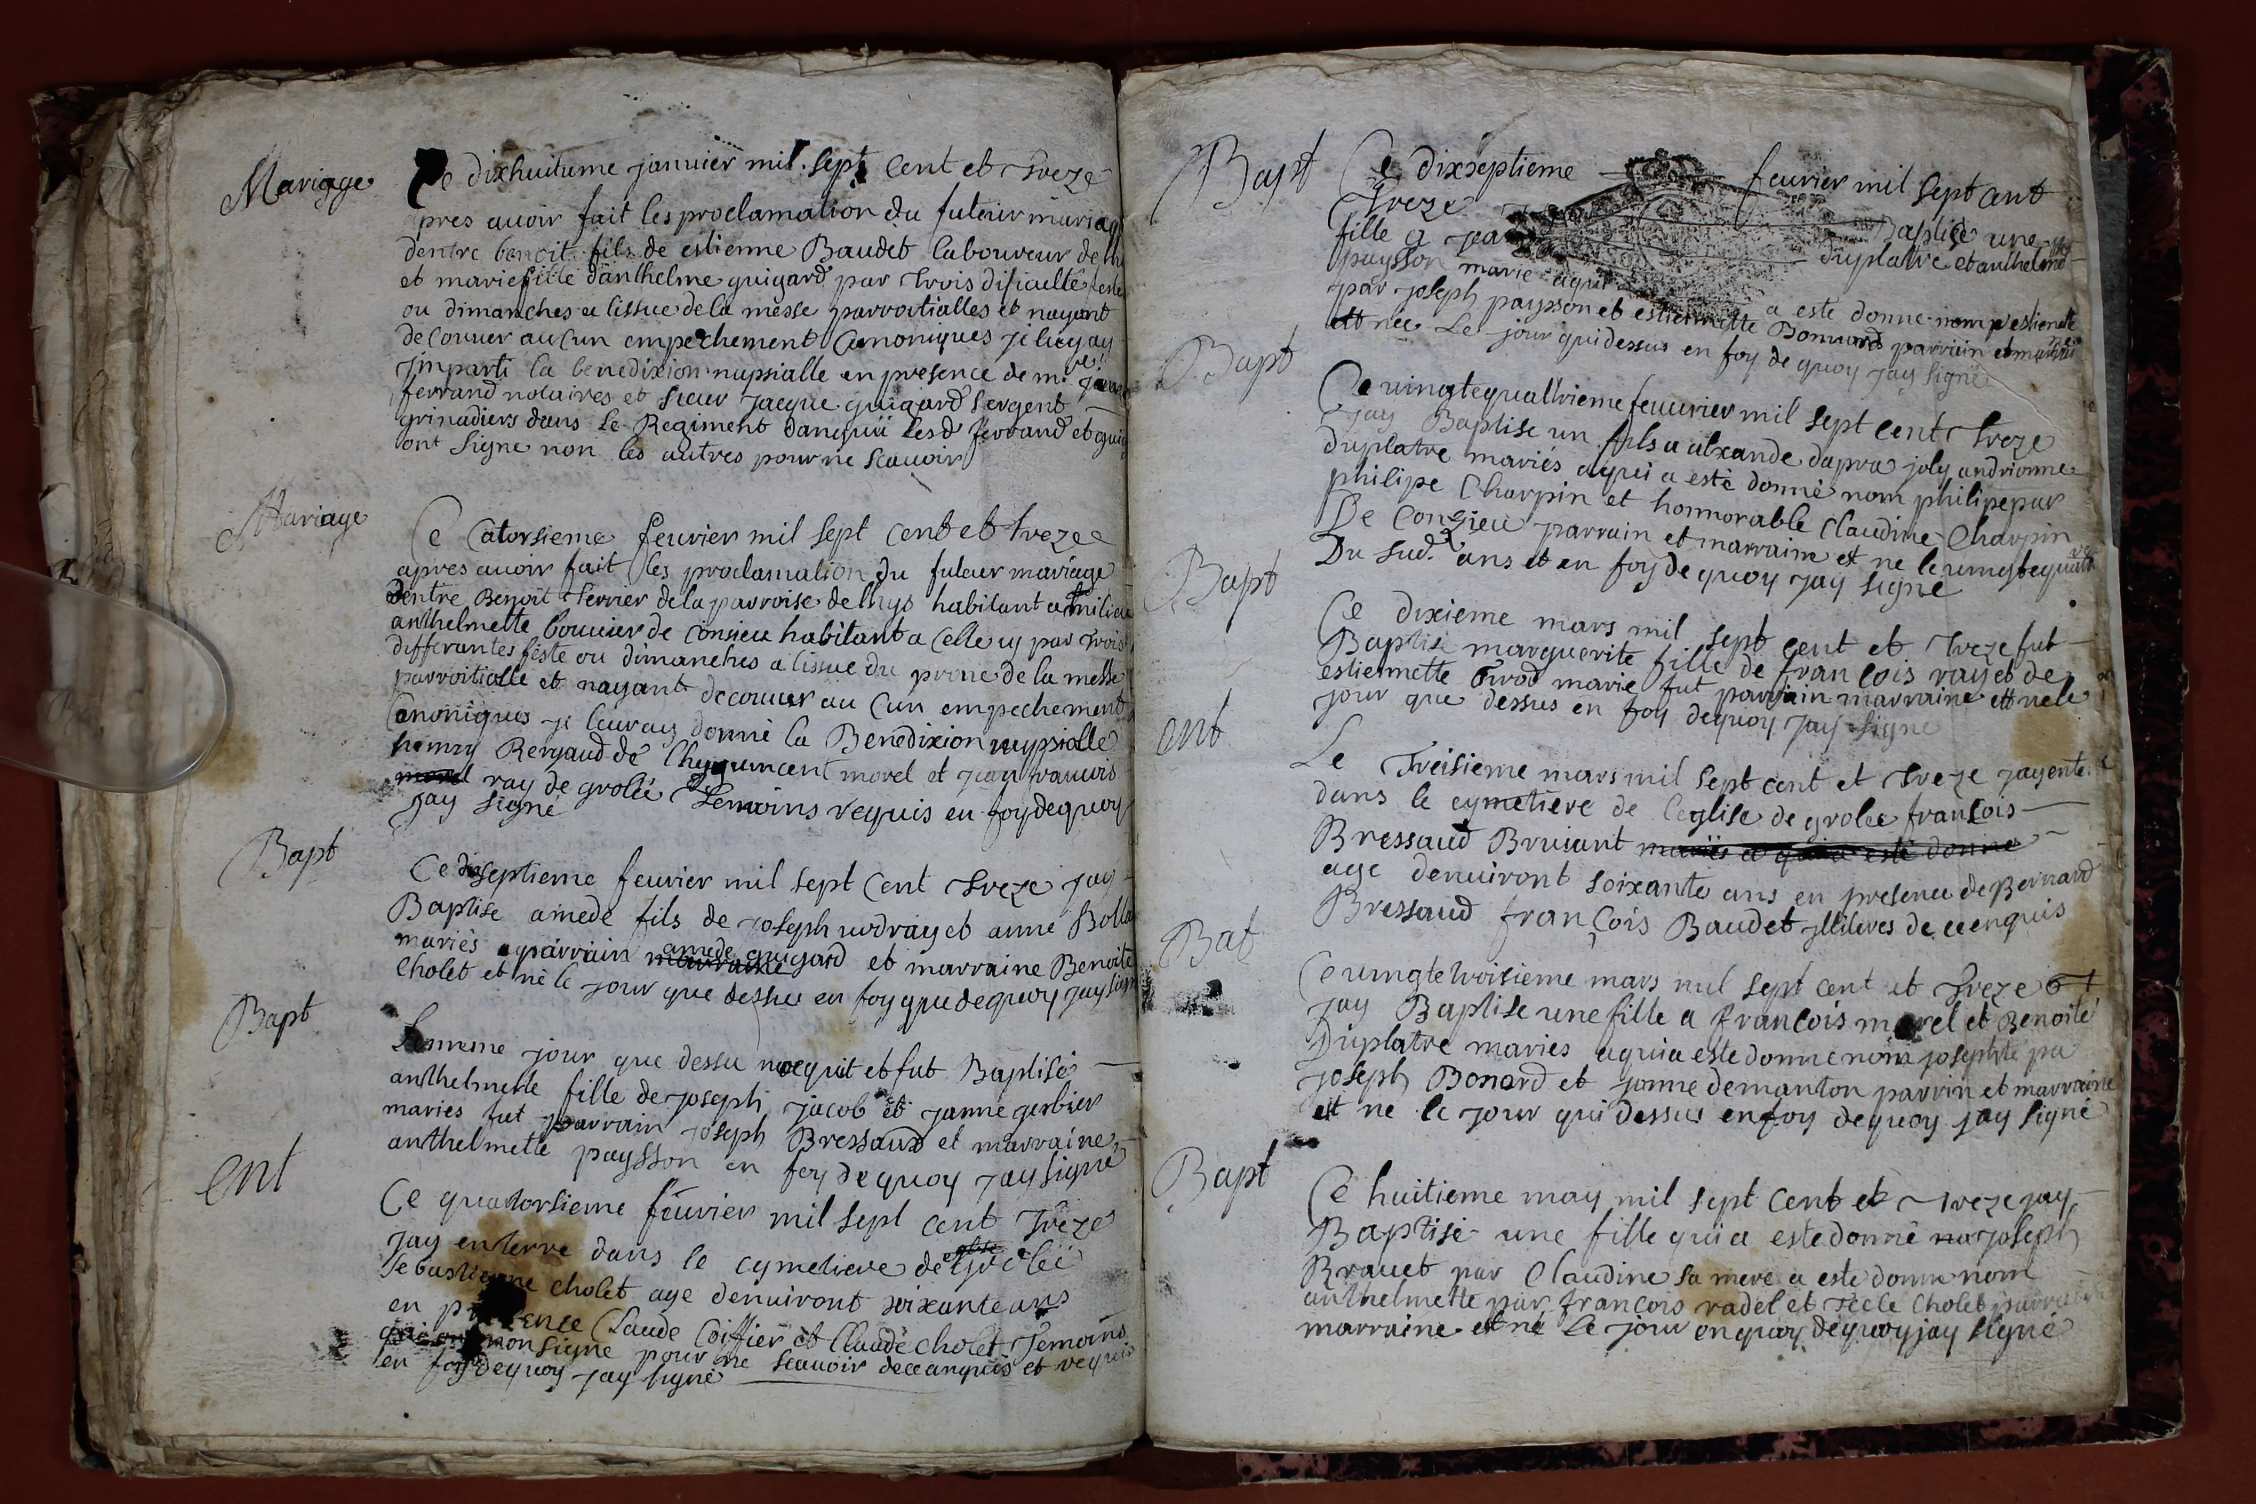 Mariage
Ce dixhuitieme januier mil sept cent et treze
apres auoir fait les proclamation du futeur mariage
dentre benoit fils de estienne Baudet laboureur de
et marie fille danthelme guigard par trois
ou dimanches a lissue de la messe parroitialles et nayant
decouuer aucun empechement Canoniques je
jmparti la benedixion nupsialle en presence de mr
ferrand notaires et sieur jacque guigard sergent
grinadiers dans le Regiment danguii lesd ferrand et guig
ont signe non les autres pour ne scauoir
Mariage
Ce Catorsieme feurier mil sept cent et treze
apres auoir fait les proclamation du futeur mariage
dentre Benoit ferrier de la parroise de lhys habitant a
anthelmette bouuier de Consieu habitant a Celle cy par trois
differantes feste ou dimanches a lissue du prone de la messe
parroitialle et nayant decouuer au Cun empechement
Canoniques je leuray donné la Benedixion nupsialle
Renaud de morel et jean francois
ray de grolée temoins requis en foy de quoy
jay signé
Bapt
Ce dixseptieme feurier mil sept Cent treze jay
Baptise amede fils de joseph et anne
mariés a parrain amede guigard et marraine Benoite
Cholet et né le jour que dessus en foy que de quoy jay signe
Bapt
Le meme jour que dessu nacquit et fut Baptisé
anthelmette fille de joseph jacob et janne gerbier
maries fut parrain joseph Bressaud et marraine
anthelmette paysson en foy de quoy jay signé
ent
Ce quattorsieme feurier mil sept cent treze
jay enterre dans le cymetiere de eglise grolée
Sebastienne cholet age denuiront soixante ans
en presence Claude Coiffier et Claude Cholet temoins
non signe pour ne scauoir de ce anquis et requis
en foy de quoy jay signe
Bapt
Ce dixseptieme feurier mil sept cent
treze Baptisé une
fille a duplatre et anthelme
paysson marie aqui a este donne nom estienette
par joseph paysson et estiennette Bonnard parrain et marraine
et née Le jour qui dessus en foy de quoy jay signe
Bapt
Ce uingtequattrieme feuurier mil sept cent treze
jay Baptise un fils a alxande dapra joly andrionne
duplatre mariés aqui a esté donné nom philipe par
philipe Charpin et honnorable Claudine Charpin
De Conzieu parrain et marraine et ne le uingtequatre
Du sud. ans et en foy de quoy jay signe
Bapt
Ce dixieme mars mil sept cent et treze fut
Baptisé marguerite fille de francois ray et de
estiennette marie fut parrain marraine et ne le
jour que dessus en foy dequoy jay signe
ent
Le treisieme mars mil sept cent et treze jay ente
dans le cymetiere de leglise de grolee francois
Bressaud Bruiant mariés a qui a esté donne
age denuiront soixante ans en presence de Bernard
Bressaud francois Baudet jlliteres de ce enquis
Bat
Ce uingte troisieme mars mil sept cent et treze
jay Baptise une fille a francois morel et Benoite
Duplatre maries aqui a este donne nom josephte pa
joseph Bonard et janne demanton parrin et marraine
et ne le jour qui dessus en foy dequoy jay signé
Bapt
Ce huitieme may mil sept Cent et treze jay
Baptisé une fille qui a este donné joseph
Brauet par Claudine sa mere a este donne nom
anthelmette par francois radel et Cholet
marraine et né le jour en quay dequoy jay signé